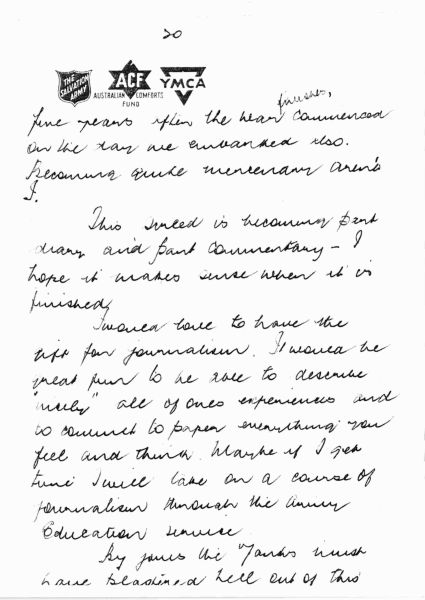 20
THE SALVATION ARMY
ACF
AUSTRALIAN COMFORTS FUND
YMCA
finishes,
five years after the war commenced
on the day we embarked also.
Becoming quite mercenary aren't
I.
This screed is becoming part
diary and part commentary – I
hope it makes sense when it is
finished,
I would love to have the
gift for journalism. It would be
great fun to be able to describe
"nicely" all of ones experiences and
to commit to paper everything you
feel and think. Maybe if I get
time I will take on a course of
journalism through the Army
Education service.
By jove the Yanks must
have blasted hell out of this